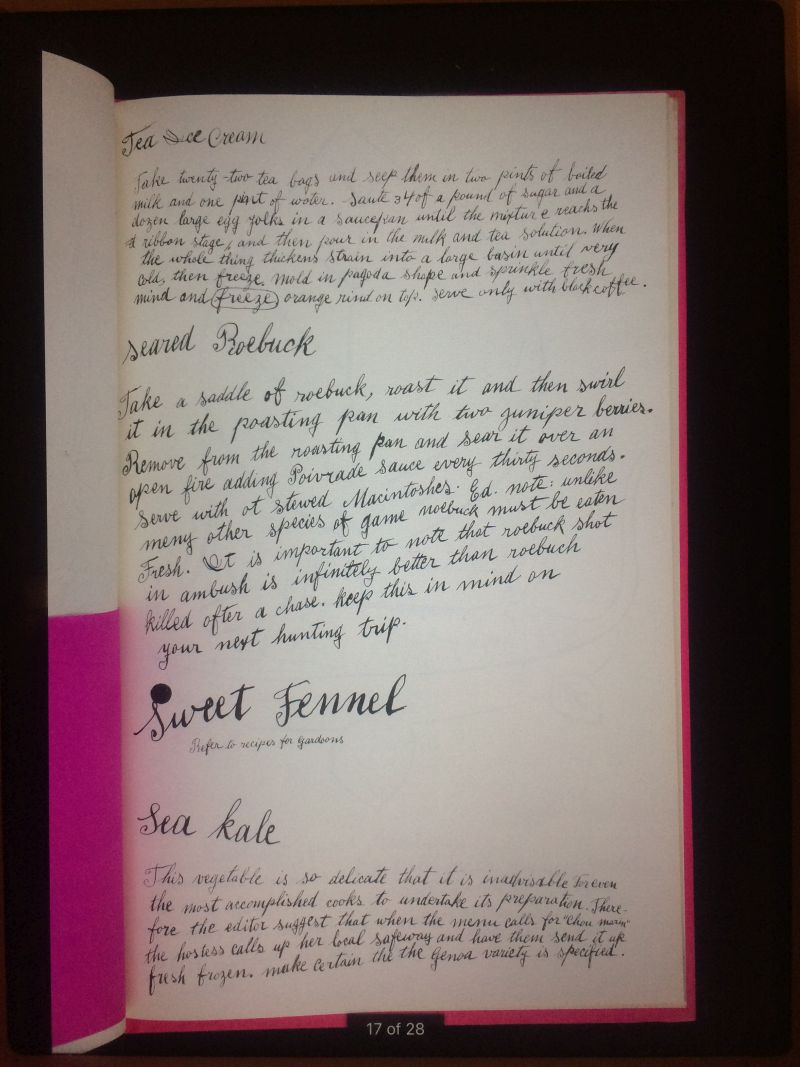 Tea Ice Cream
Take twenty-two tea bags and seep them in two pints of boiled
milk and one pint of water. Saute 3/4 of a pound of sugar and a
dozen large egg yolks in a saucepan until the mixture reachs the
ribbon stage, and then pour in the milk and tea solution. When
the whole thing thickens strain into a large basin until very
cold, then freeze. Mold in pagoda shape and sprinkle fresh
mind and freeze orange rind on top. Serve only with black coffee.
Seared Roebuck
Take a saddle of roebuck, roast it and then swirl
it in the poasting pan with two juniper berries.
Remove from the roasting pan and sear it over an
open fire adding Poivrade sauce every thirty seconds.
Serve with ot stewed Macintoshes. Ed. note: unlike
meny other species of game roebuck must be eaten
Fresh. It is important to note that roebuck shot
in ambush is infinitely better than roebuch
killed after a chase. Keep this in mind on
your next hunting trip.
Sweet Fennel
Refer to recipes for Gardoons
Sea kale
This vegetable is so delicate that it is inadvisable For even
the most accomplished cooks to undertake its preparation. There-
fore the editor suggest that when the menu calls for "Chou marin"
the hostess calls up her local Safeway and have them send it up
fresh frozen. make certain the the Genoa variety is specified.
17 of 28